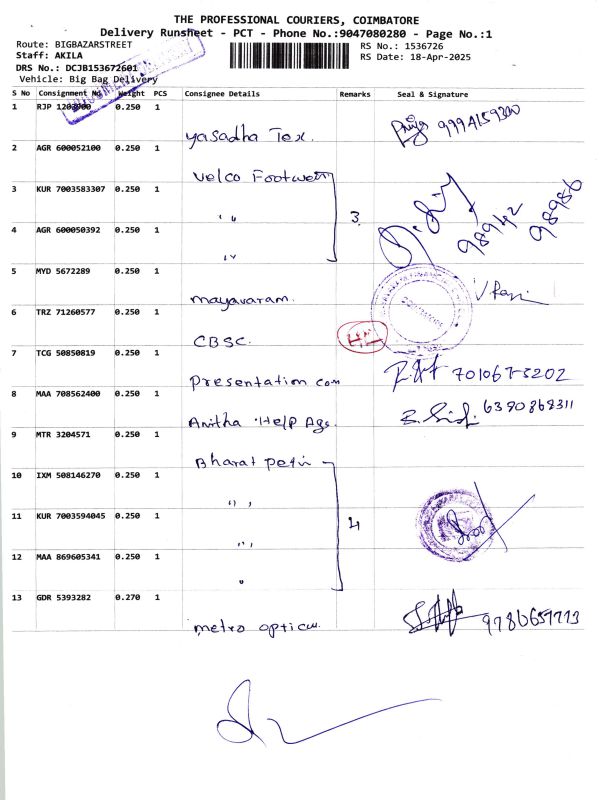 THE PROFESSIONAL COURIERS, COIMBATORE
Delivery Runsheet - PCT - Phone No.:9047080280 - Page No.:1
Route: BIGBAZARSTREET
RS No.: 1536726
Staff: AKILA
RS Date: 18-Apr-2025
DRS No.: DCJB153672601
Vehicle: Big Bag Delivery
S No Consignment No Weight PCS Consignee Details Remarks Seal & Signature
1 RJP 0.250 1
yasadha Tex.
2 AGR 600052100 0.250 1
Velco
3 KUR 7003583307 0.250 1
" " 3
4 AGR 600050392 0.250 1
" "
5 MYD 5672289 0.250 1
mayavaram.
6 TRZ 71260577 0.250 1
CBSC.
7 TCG 50850819 0.250 1
Presentation con 701067-5202
8 MAA 708562400 0.250 1
Anitha Help Ags. 6390868311
9 MTR 3204571 0.250 1
Bharat petri
10 IXM 508146270 0.250 1
" "
11 KUR 7003594045 0.250 1 4
" "
12 MAA 869605341 0.250 1
"
13 GDR 5393282 0.270 1
metro 9786657773